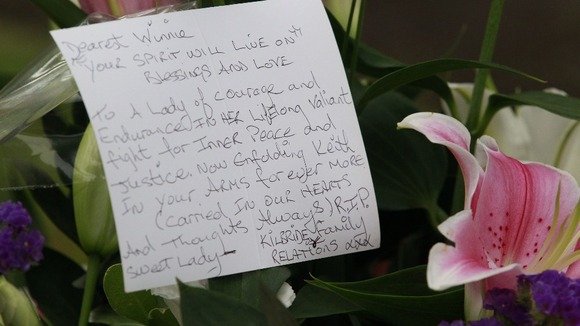 Dearest Winnie
"YOUR SPIRIT WILL LIVE ON"
BLESSINGS AND LOVE
To A LADY of COURAGE and
Endurance, IN HER Lifelong Valiant
fight for INNER PEACE and
Justice. Now Enfolding Keith
IN your ARMS forever MORE
(CARRIED IN OUR HEARTS
And Thoughts Always) R.I.P.
sweet Lady
KILBRIDE family
RELATIONS xxx